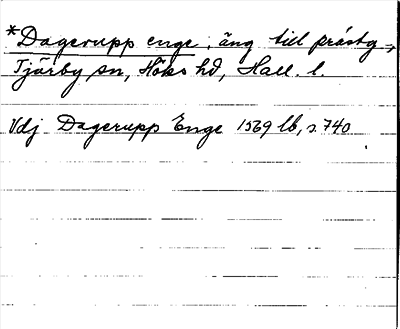 *Dagerupp enge, äng till prästg.,
Tjärby sn, Höks hd, Hall. l.
Vdj Dagerupp Enge 1569 lb, s. 740